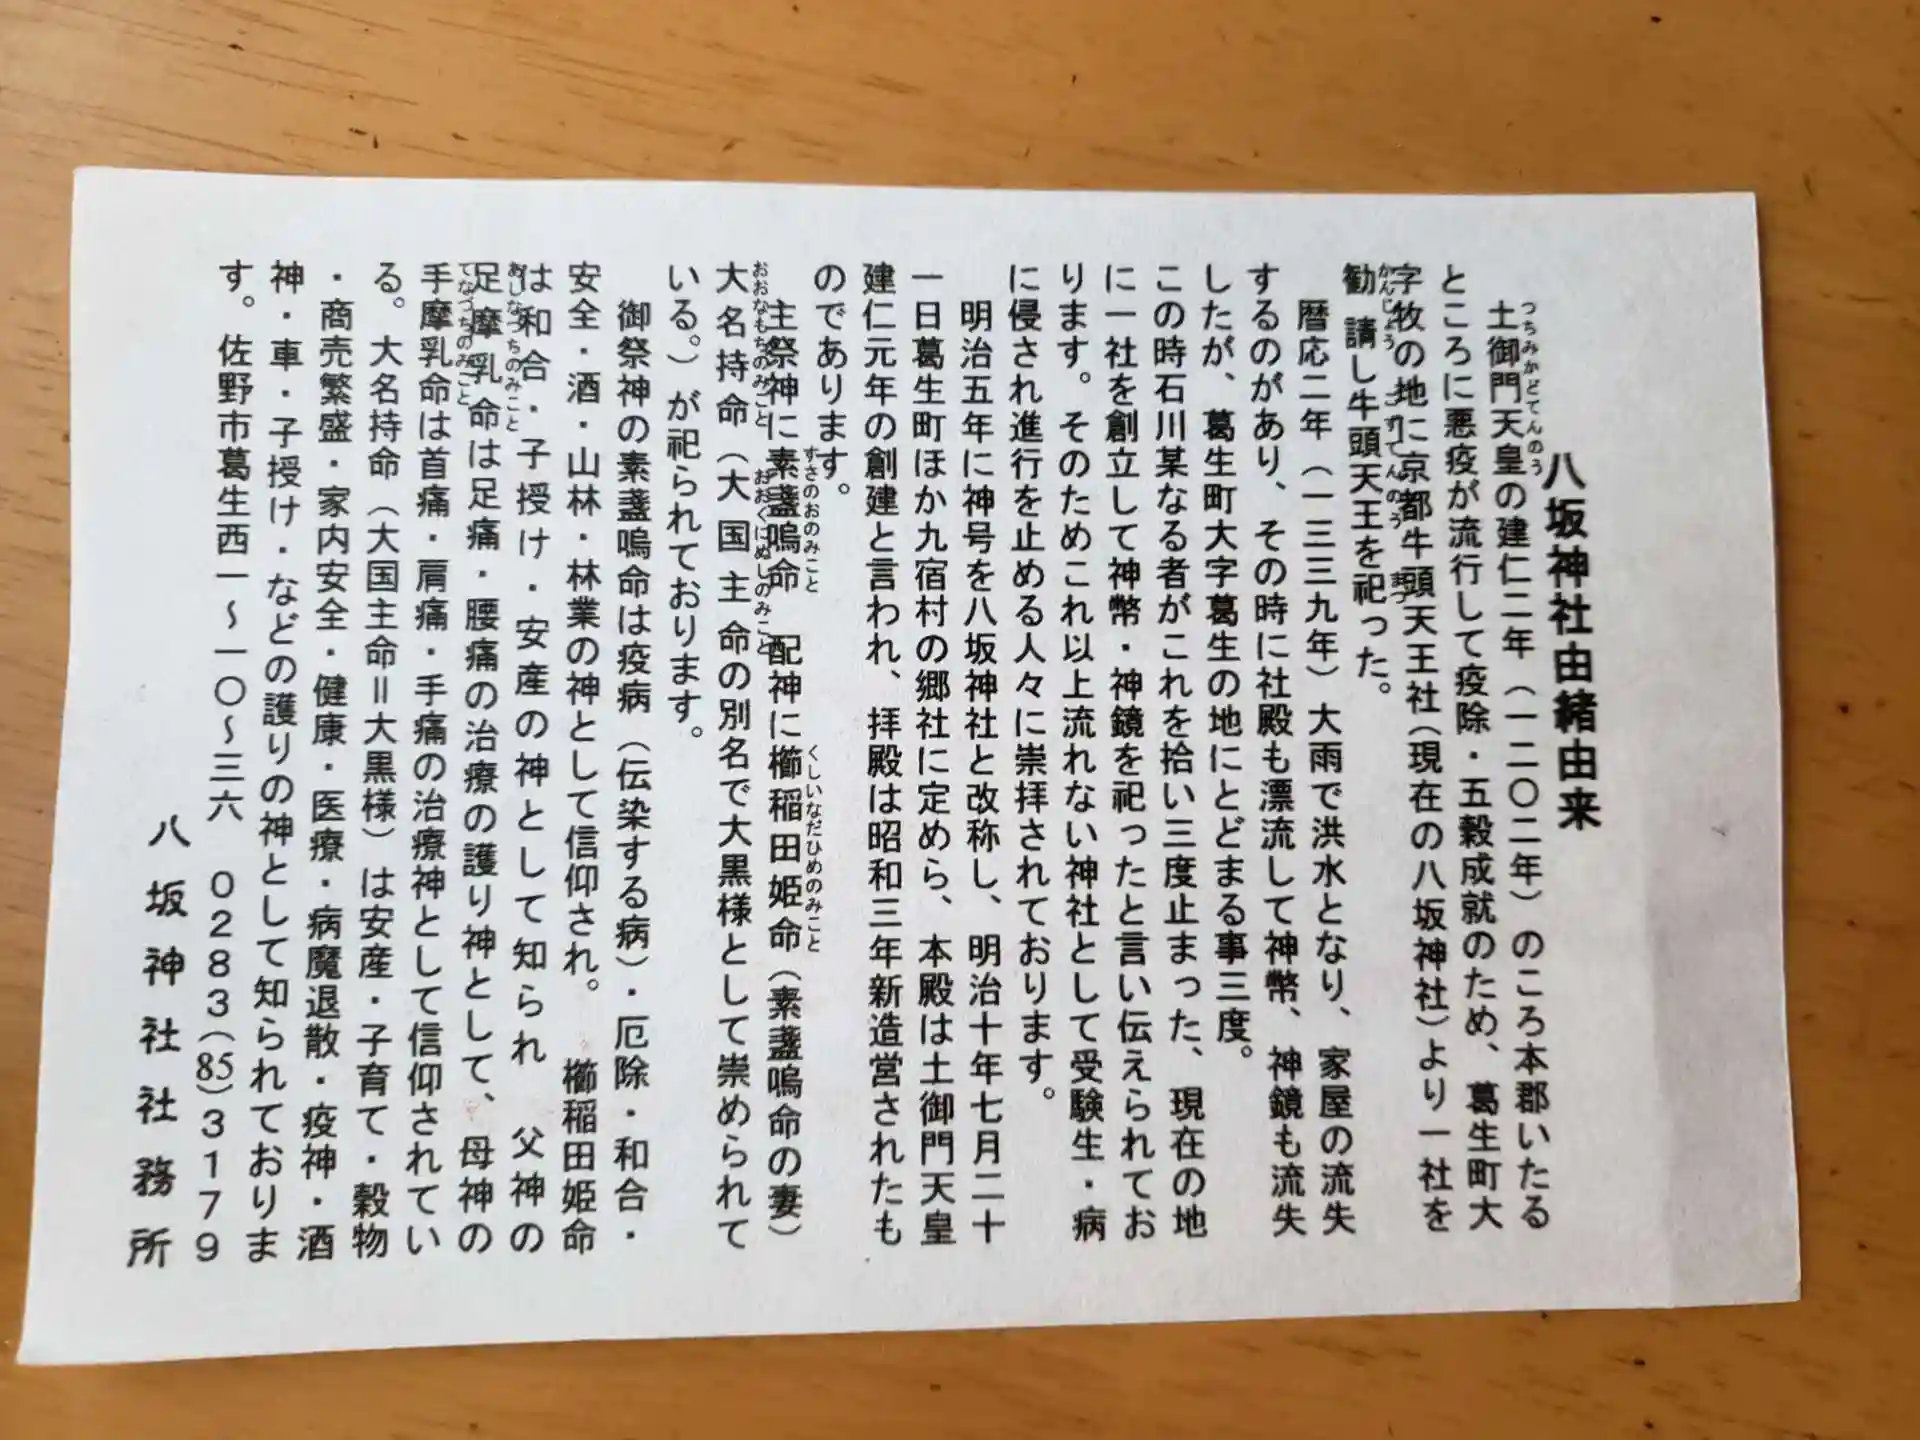 八坂神社由緒由来
土御門天皇の建仁二年（一二〇二年）のころ本郡いたる
ところに悪疫が流行して疫除・五穀成就のため、葛生町大
字牧の地に京都牛頭天王社（現在の八坂神社）より一社を
勧請し牛頭天王を祀った。
暦応二年（一三三九年）大雨で洪水となり、家屋の流失
するのがあり、その時に社殿も漂流して神幣、神鏡も流失
したが、葛生町大字葛生の地にとどまる事三度。
この時石川某なる者がこれを拾い三度止まった、現在の地
に一社を創立して神幣・神鏡を祀ったと言い伝えられてお
ります。そのためこれ以上流れない神社として受験生・病
に侵され進行を止める人々に崇拝されております。
明治五年に神号を八坂神社と改称し、明治十年七月二十
一日葛生町ほか九宿村の郷社に定めら、本殿は土御門天皇
建仁元年の創建と言われ、拝殿は昭和三年新造営されたも
のであります。
主祭神に素盞嗚命　配神に櫛稲田姫命（素盞嗚命の妻）
大名持命（大国主命の別名で大黒様として崇められて
いる。）が祀られております。
御祭神の素盞嗚命は疫病（伝染する病）・厄除・和合・
安全・酒・山林・林業の神として信仰され。　櫛稲田姫命
は和合・子授け・安産の神として知られ　父神の
足摩乳命は足痛・腰痛の治療の護り神として、母神の
手摩乳命は首痛・肩痛・手痛の治療神として信仰されてい
る。大名持命（大国主命＝大黒様）は安産・子育て・穀物
・商売繁盛・家内安全・健康・医療・病魔退散・疫神・酒
神・車・子授け・などの護りの神として知られておりま
す。佐野市葛生西一～一〇～三六　０２８３（85）３１７９
八坂神社社務所